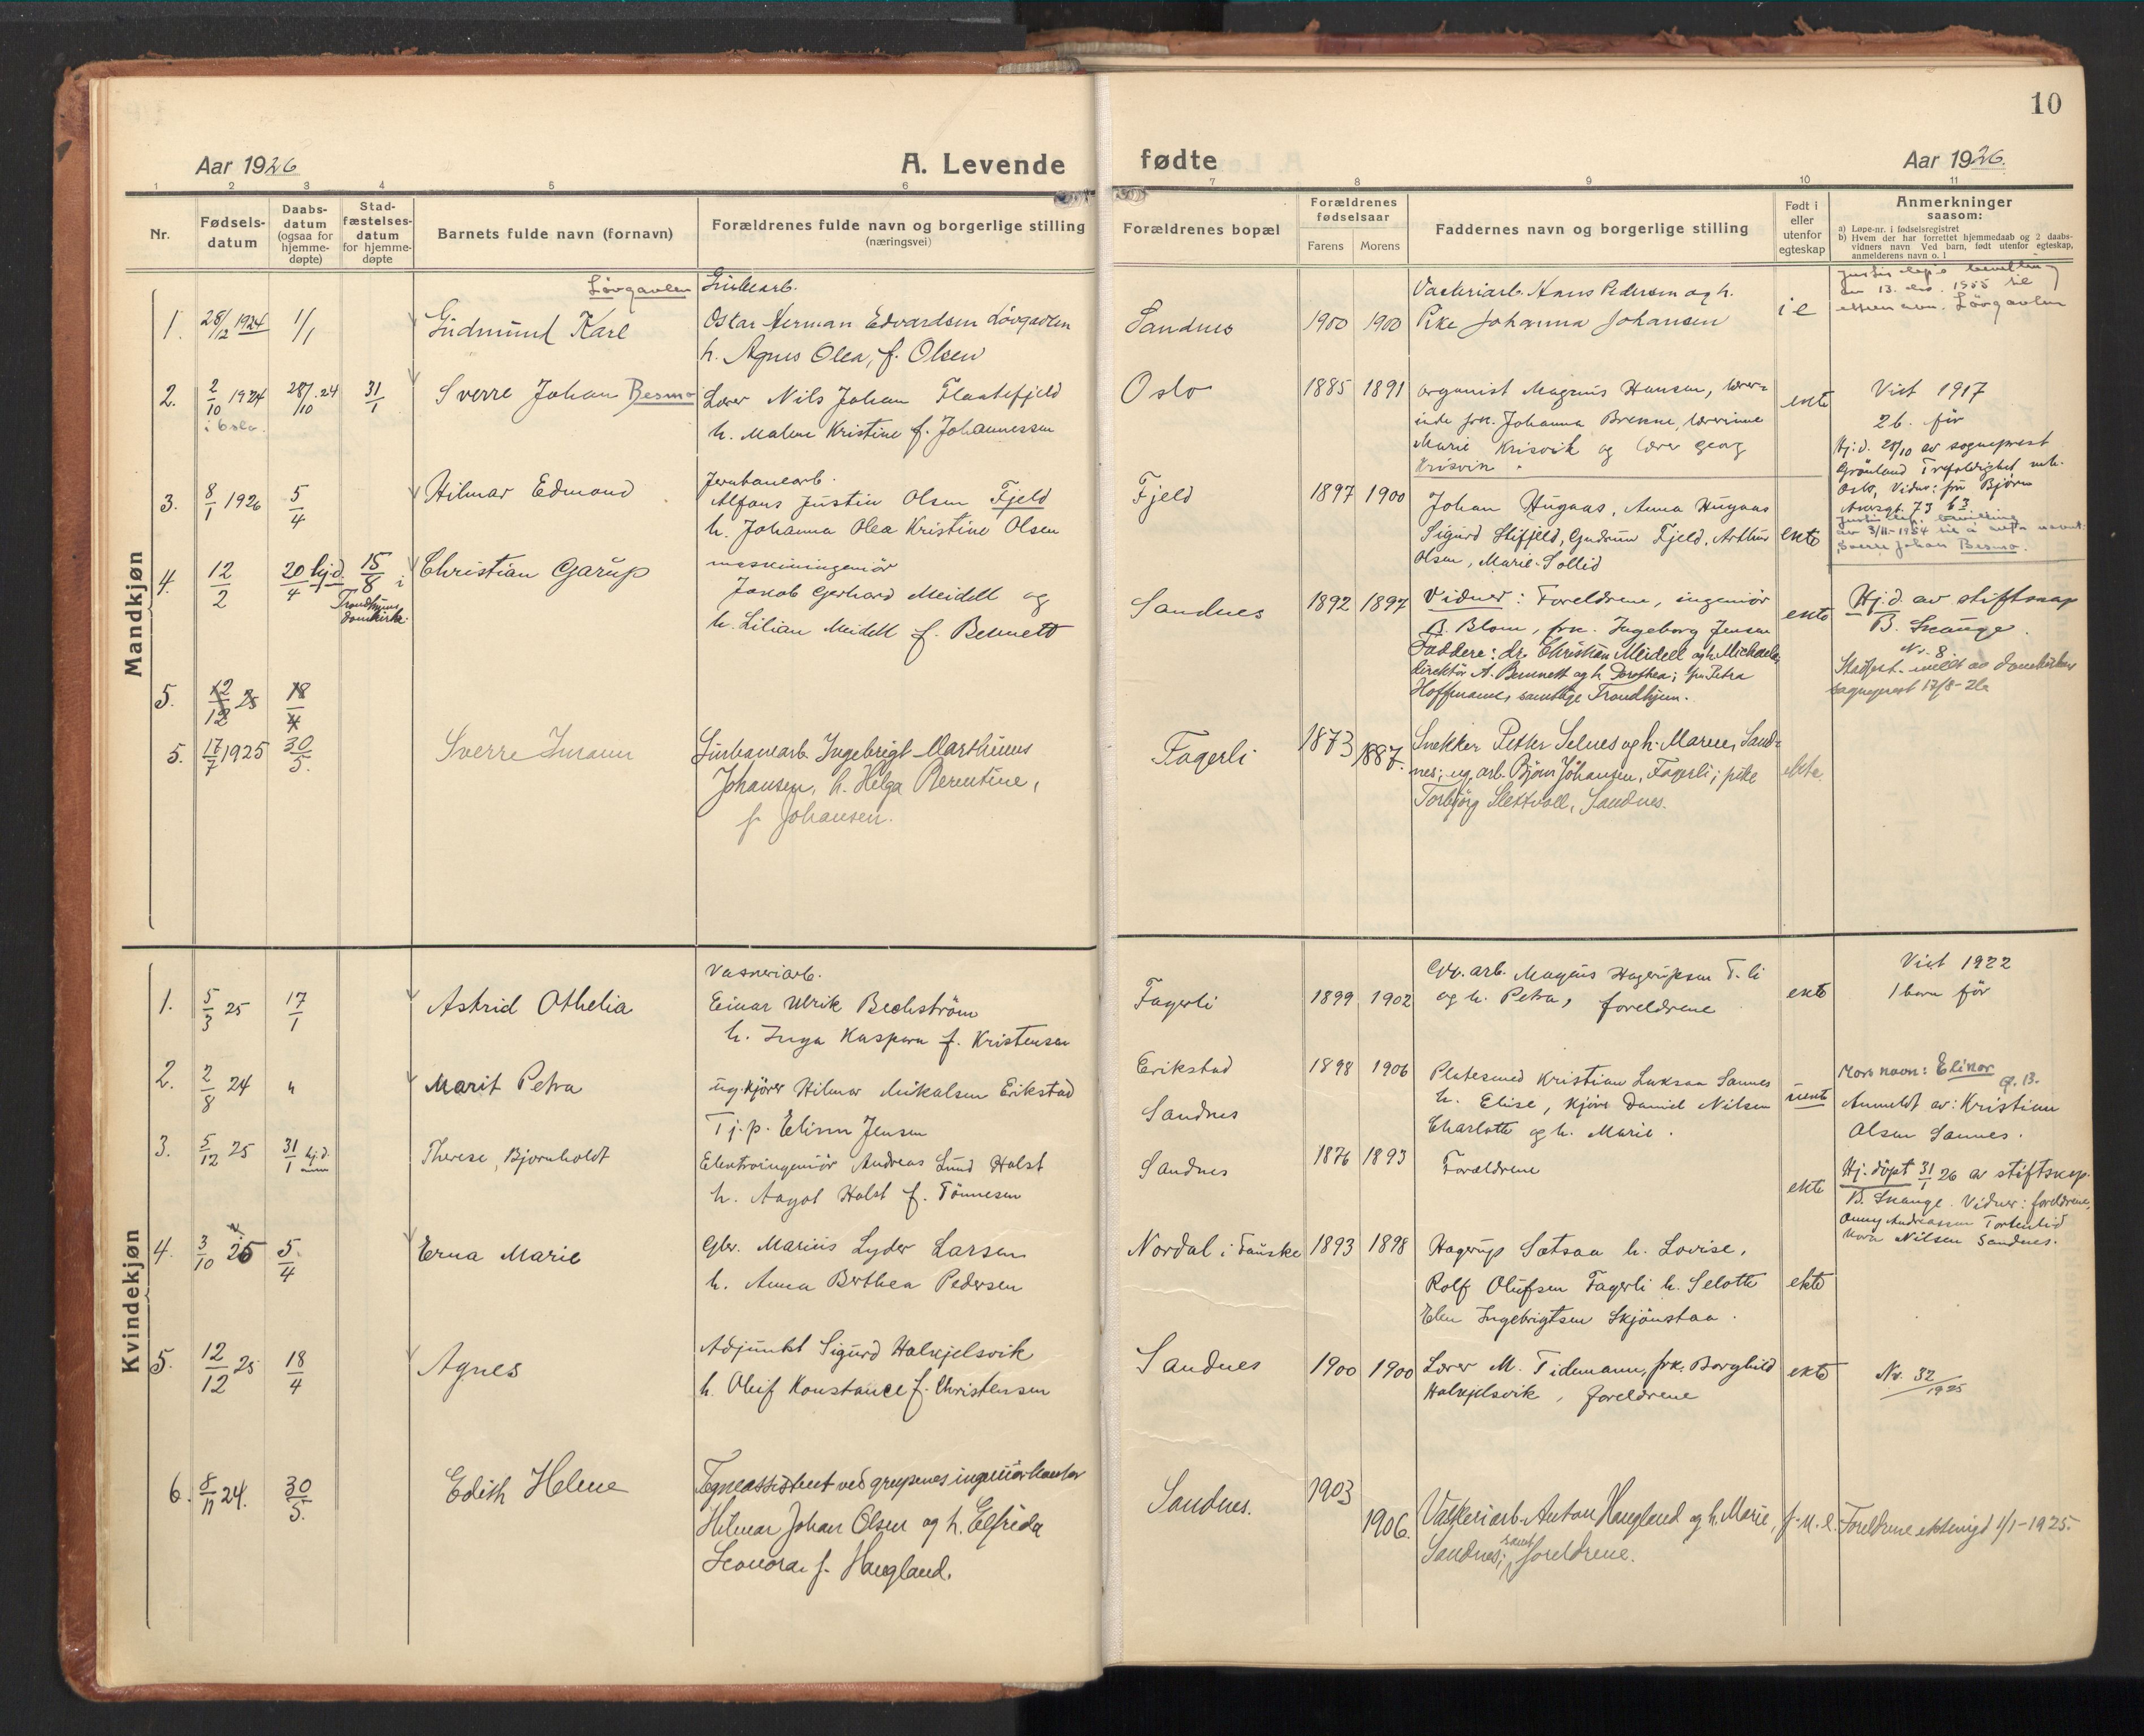 10
Aar 1926
A. Levende fødte
Aar 1926.
1 2 3 4 5 6 7 8 9 10 11
Nr.
Fødsels-
datum
Daabs-
datum
(ogsaa for
hjemme-
døpte)
Stad-
fæstelses-
datum
for hjemme-
døpte
Barnets fulde navn (fornavn)
Forældrenes fulde navn og borgerlige stilling
(næringsvei)
Forældrenes bopæl
Forældrenes
fødselsaar
Farens
Morens
Faddernes navn og borgerlige stilling
Født i
eller
utenfor
egteskap
Anmerkninger
saasom:
a) Løpe-nr. i fødselsregistret
b) Hvem der har forrettet hjemmedaab og 2 daabs-
vidners navn Ved barn, født utenfor egteskap,
anmelderens navn o. l
Mandkjøn
1.
28/12 1924
1/1
Løvgavlen
Gudmund Karl
Oskar Herman Edvardsen Løvgavlen
h. Agnes Olea, f. Olsen
Sandnes
1900
1900
Vaskeriarb. Hans Pedersen og h.
Pike Johanna Johansen
i e
13. des. 1955 til
navn. Løvgavlen
2.
2/10 1924
i Oslo.
28/10 .24
31/1
Sverre Johan Besmo
Lærer Nils Johan Flaatefjeld
h. Malene Kristine f. Johannessen
Oslo
1885
1891
organist Magnus Hansen, lærer-
inde frk. Johanna Brenne, lærerinne
Marie Krisvik og lærer Georg
Krisvik
ekte
Viet 1917
2 b. før
Hj.d. 28/10 av sogneprest
Grönland Trefoldighet mh.
Oslo, Vidner: fru Björn
Akersgt. 73 b3.
Justisdep. bevilling
av 3/11-1954 til å navnet:
Sverre Johan Besmo.
3.
8/1 1926
5/4
Hilmar Edmond
Jernbanearb.
Alfons Justin Olsen Fjeld
h. Johanna Olea Kristine Olsen
Fjeld
1897
1900
Johan Hugaas, Anna Hugaas
Sigurd Stifjeld, Gudrun Fjeld, Arthur
Olsen, Marie Sollid
ekte
4.
12/2
20/4 hj.d.
15/8 i
Trondhjems
domkirke.
Christian Garup
maskiningeniör
Jakob Gerhard Meidell og
h. Lilian Meidell f. Bennett
Sandnes
1892
1897
Vidner: Foreldrene, ingeniör
B. Blom, frk. Ingeborg Jensen
Faddere: dr. Christian Meidell og h. Michaela,
direktör A. Bennett og h. Dorothea; fru Petra
Hoffmann, samtlige Trondhjem.
ekte
Hj.d. av stiftskap
B. Skauge.
Nr. 8
Stadfest. meldt av domkirkens
sogneprest 17/8-26
5.
12/12 25
18/4
5.
17/7 1925
30/5.
Sverre Imann
Gurbanearb. Ingebrigt Marthinus
Johansen, h. Helga Berentine,
f. Johansen.
Fagerli
1873
1887.
Snekker Petter Selnes og h. Maren, Sand-
nes; ug. arb. Bjørn Johansen, Fagerli; pike
Torbjörg Slettvoll, Sandnes.
ekte.
Kvindekjøn
1.
5/3 25
17/1
Astrid Othelia
Vaskeriarb.
Einar Ulrik Bechström
h. Inga Kaspara f. Kristensen
Fagerli
1899
1902
arb. Magnus Hagerupsen F.li
og h. Petra, foreldrene
ekte
Viet 1922
1 barn før
2.
2/8 24
"
Marit Petra
ug. kjörer Hilmar Mikalsen Erikstad
Tj.p. Elinor Jensen
Erikstad
Sandnes
1898
1906
Platesmed Kristian Sannes
h. Elise, kjörer Daniel Nilsen
Charlotte og h. Marie.
uekte
Mors navn: Elinor
Anmeldt av: Kristian
Olsen Sannes.
3.
5/12 25
31/1 hj.d.
Therese, Bjornholdt
Elektroingeniör Andreas Lund Holst
h. Aagot Holst f. Tönnesen
Sandnes
1876
1893
Foreldrene
ekte
Hj. döpt 31/1 26 av stiftskap.
B. Skauge. Vidner: foreldrene,
Andreassen
Nora Nilsen Sandnes.
4.
3/10 25
5/4
Erna Marie
Gbr. Marius Lyder Larsen
h. Anna Berthea Pedersen
Nordal i Fauske
1893
1898
Hagerup Sætsaa h. Lovise,
Rolf Olufsen Fagerli h. Selotte
Elen Ingebrigtsen Skjönstaa.
ekte
5.
12/12 25
18/4
Agnes
Adjunkt Sigurd Halkjelsvik
h. Oluf Konstance f. Christensen
Sandnes
1900
1900
Lærer M. Tidemann, frk. Borghild
Halkjelsvik, foreldrene
ekte
Nr. 32/1925
6.
8/11 24.
30/5.
Edith Helene
Tegneassistent ved grupenes ingeniørkontor
Hilmar Johan Olsen og h. Elfrida
Leonora f. Haugland.
Sandnes.
1903
1906.
Vaskeriarb. Anton Haugland og h. Marie,
Sandnes; samt foreldrene.
f. u. e.
Foreldrene ektevigd 1/1-1925.